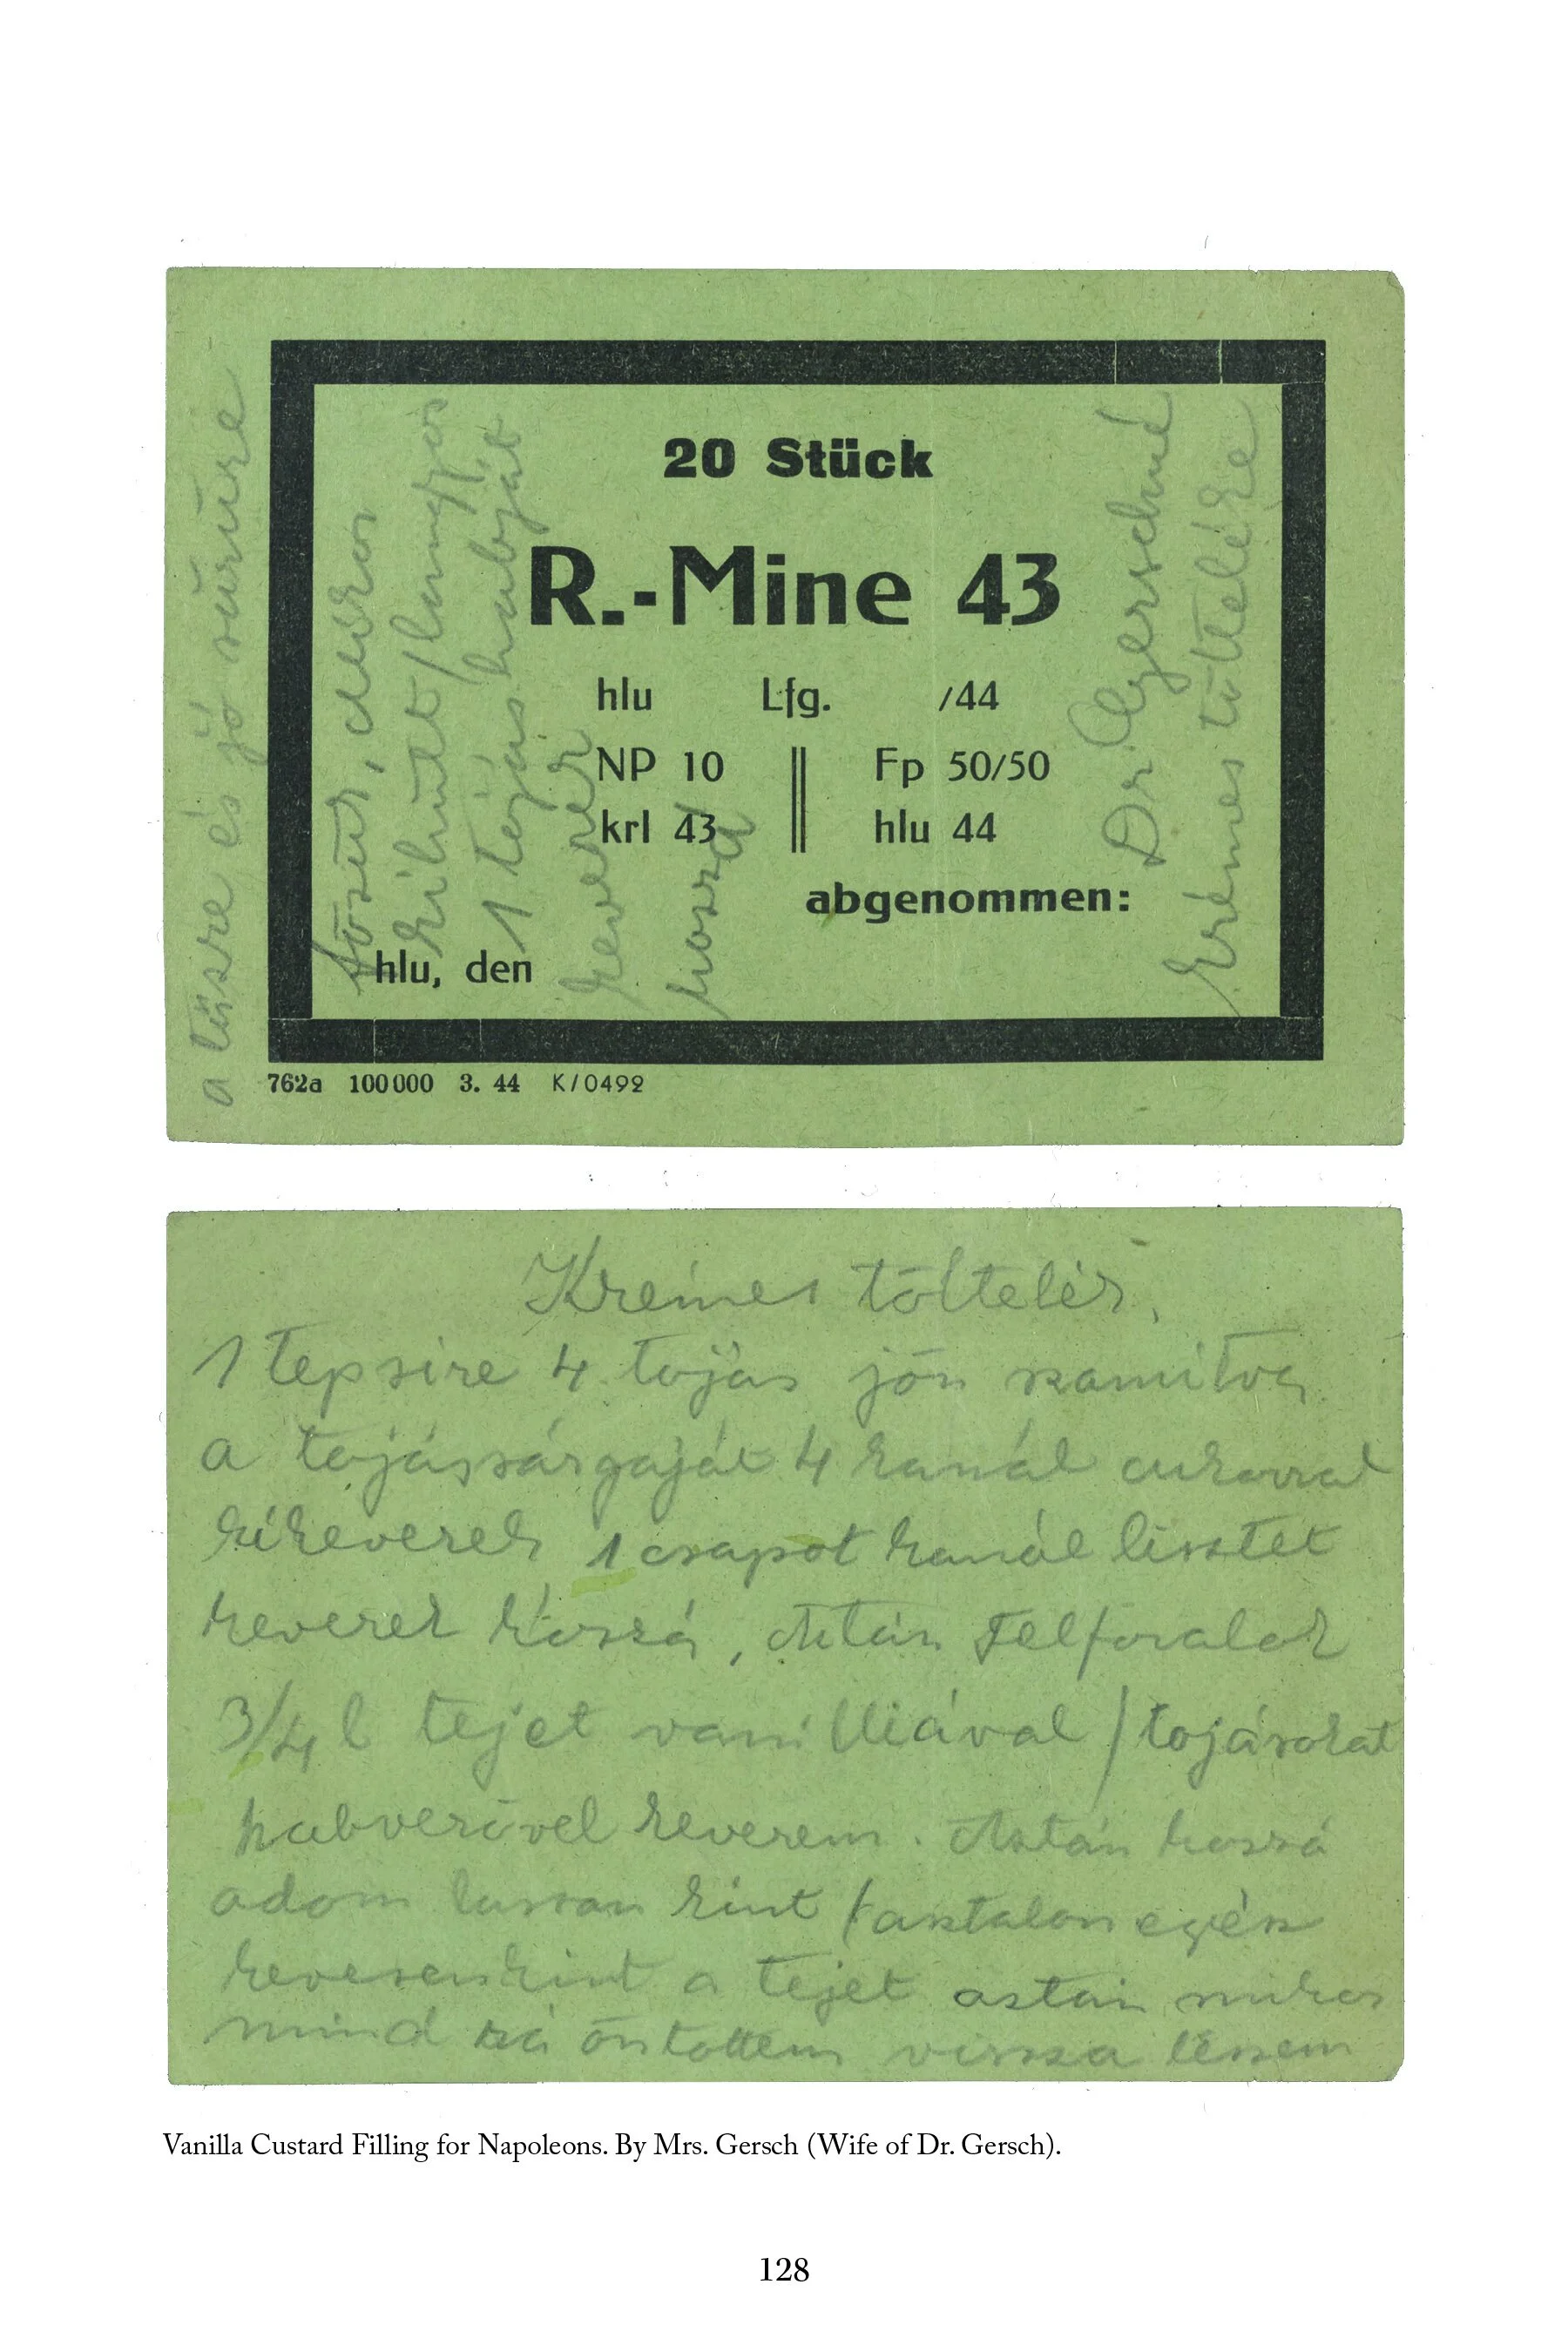 20 Stück
R.-Mine 43
hlu Lfg. /44
NP 10 Fp 50/50
krl 43 hlu 44
abgenommen:
hlu, den
762a 100000 3. 44 K/0492
a tűsre és jó sűrűre
kihűlt/langyos
1 tojás habját
keverek
hozzá
Dr. Gerschné
krémes töteléke
Krémes töltelék,
1 tepsire 4 tojás jön számitva
a tojássárgáját 4 kanál cukorral
kikeverek 1 csapot kanál lisztet
keverek hozzá, Aztán Felforalok
3/4 l tejet vanilliával / tojásokat
habverövel keverem. Aztán hozzá
adom lassan kint /asztalon egész
kevesenkint a tejet aztán mikor
mind rá öntöttem vissza tészem
Vanilla Custard Filling for Napoleons. By Mrs. Gersch (Wife of Dr. Gersch).
128